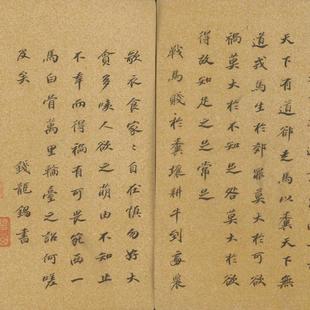 天下有道卻走馬以糞天下無
道戎馬生於郊罪莫大於可欲
禍莫大於不知足咎莫大於欲
得故知足之足常足
戰馬賤於糞壤耕牛到處農
歌衣食家〻自在慎勿好大
貪多 人欲之萌由不知止
不幸而得禍有可畏宛西一
馬白骨萬里輪臺之詔何嗟
及矣
錢龍錫書